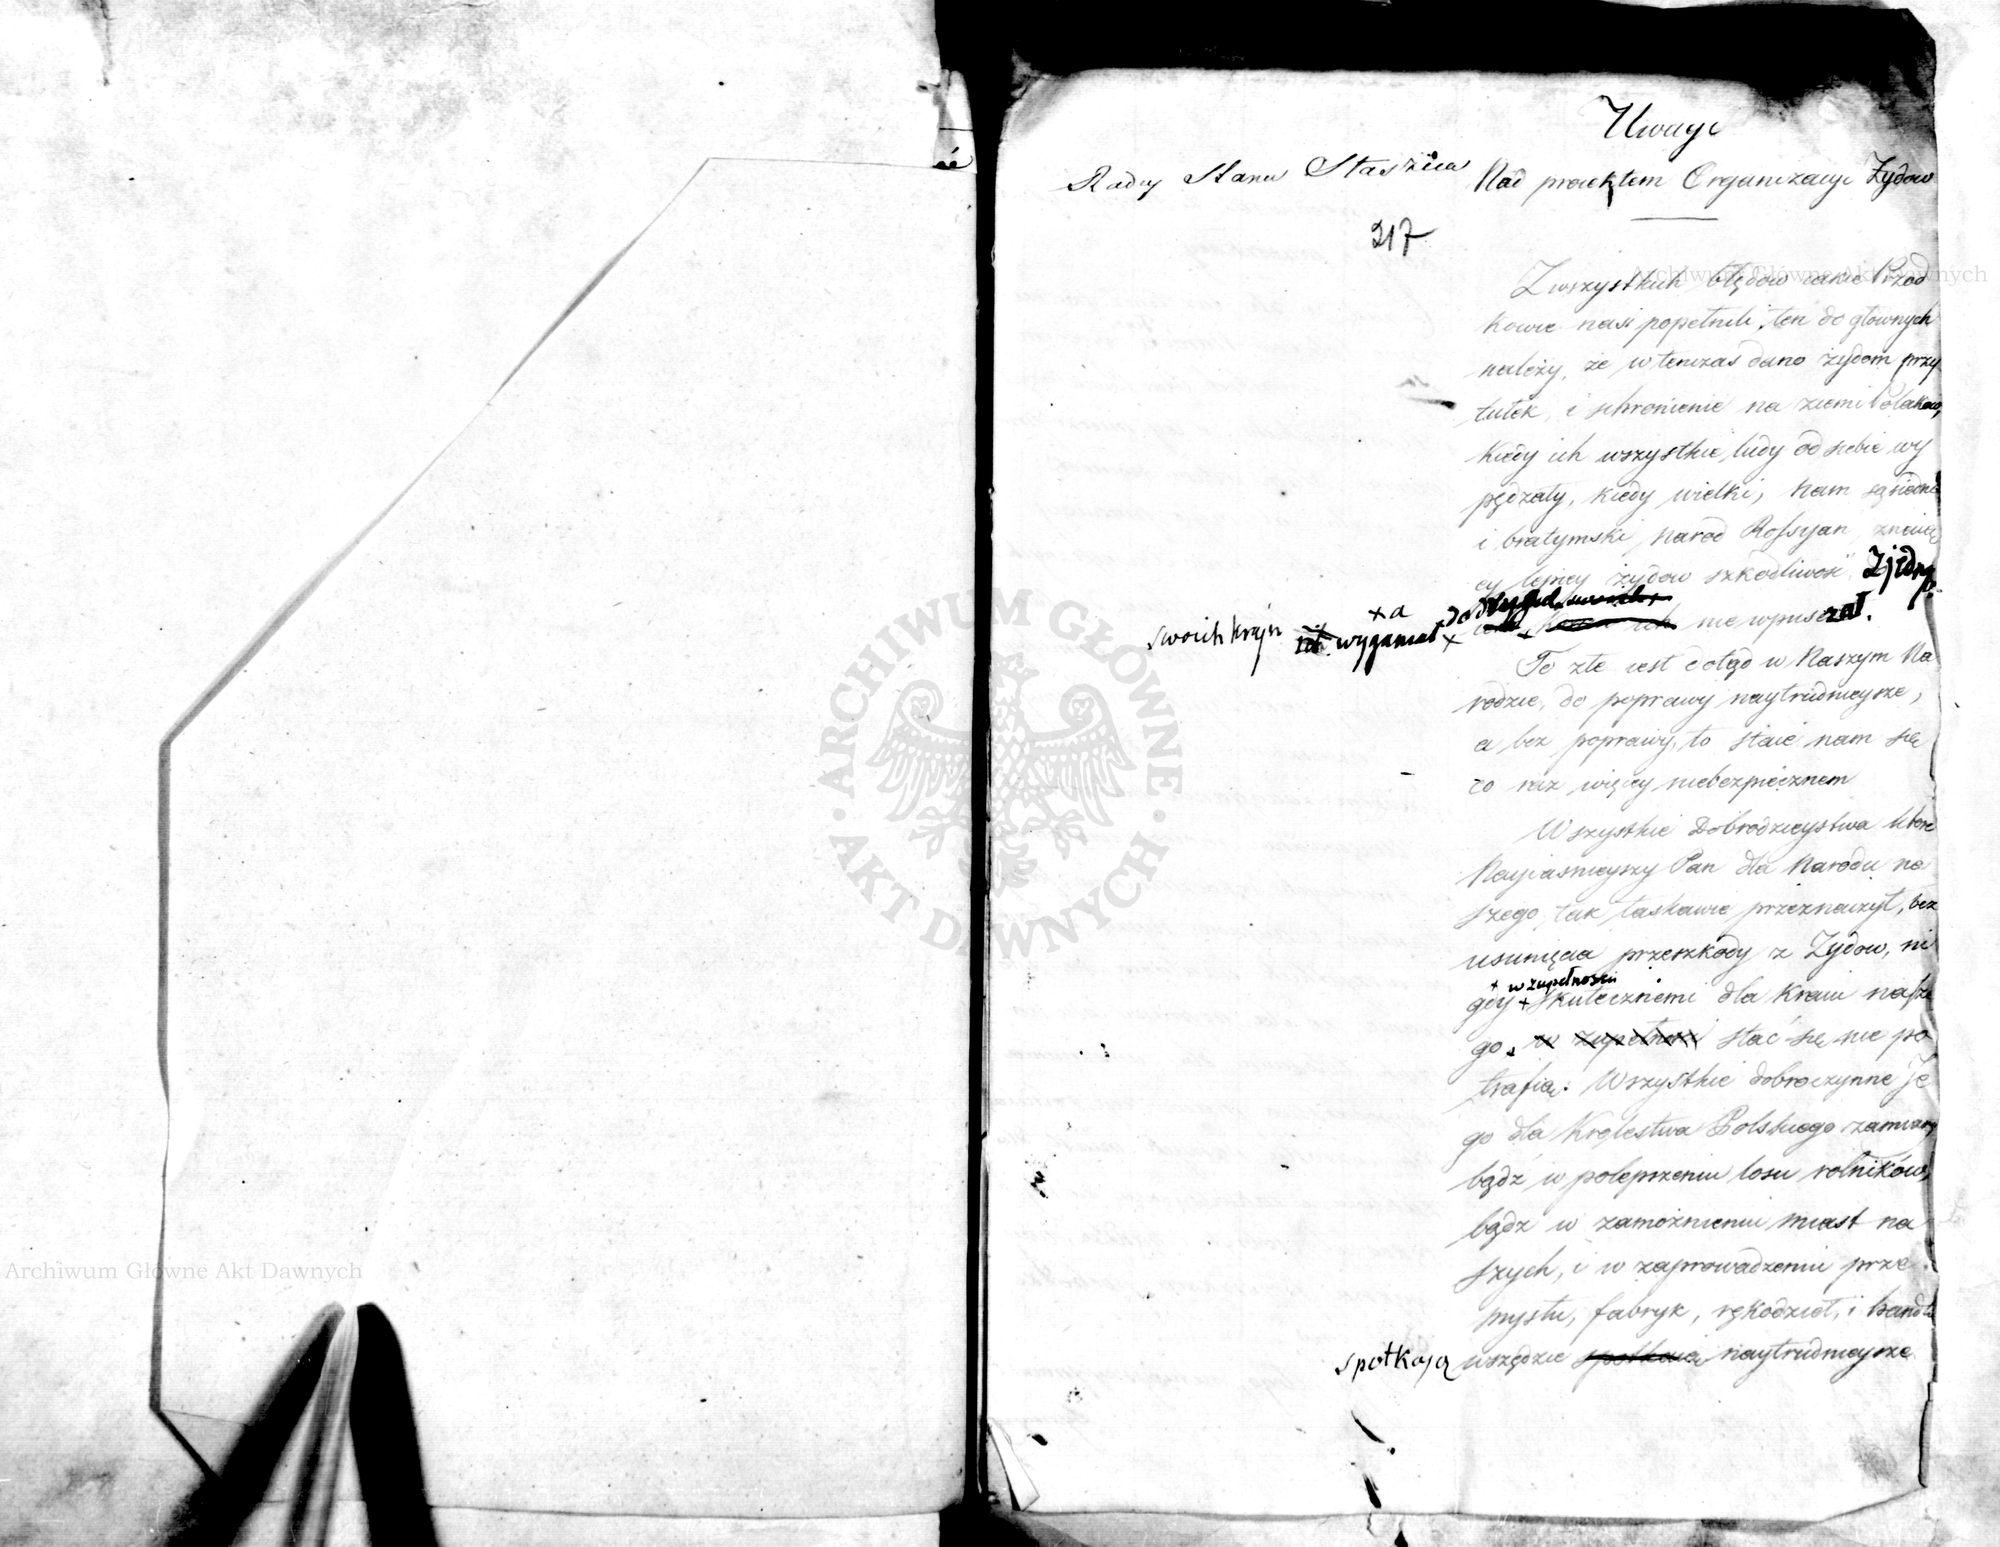 Uwagi
Rady Stanu Staszica Nad proiektem Organizacyi Żydow
217
Z wszystkich błędow iakie Przod
kowie nasi popełnili, ten do głownych
należy, że w tenczas dano żydom przy
tułek, i schronienie na ziemi Polakow,
kiedy ich wszystkie ludy od siebie wy
pędzały, kiedy wielki, nam sąsiedni
i bratymski Narod Rossyan, znaiąc
cy lepiey żydow szkodliwość
swoich krain wyganiał x nie wpuszczał.
x a
To złe iest dotąd w Naszym Na
rodzie, do poprawy naytrudnieysze,
a bez poprawy, to staie nam się
co raz więcey niebezpiecznem
Wszystkie Dobrodzieystwa które
Nayiasnieyszy Pan dla Narodu na
szego, tak łaskawie przeznaczył, bez
usunięcia przeszkody z Żydow, ni
+ w zupełności
gdy + skutecznemi dla Kraiu nasze
go, w zupełności stać się nie po
trafią. Wszystkie dobroczynne Je
go dla Krolestwa Polskiego zamiary
bądź w polepszeniu losu rolników,
bądz w zamożnieniu miast na
szych, i w zaprowadzeniu prze
mysłu, fabryk, rękodzieł, i handlu
spotkają wszędzie spotkaią naytrudnieysze
ARCHIWUM GŁÓWNE AKT DAWNYCH
Archiwum Główne Akt Dawnych
Archiwum Główne Akt Dawnych